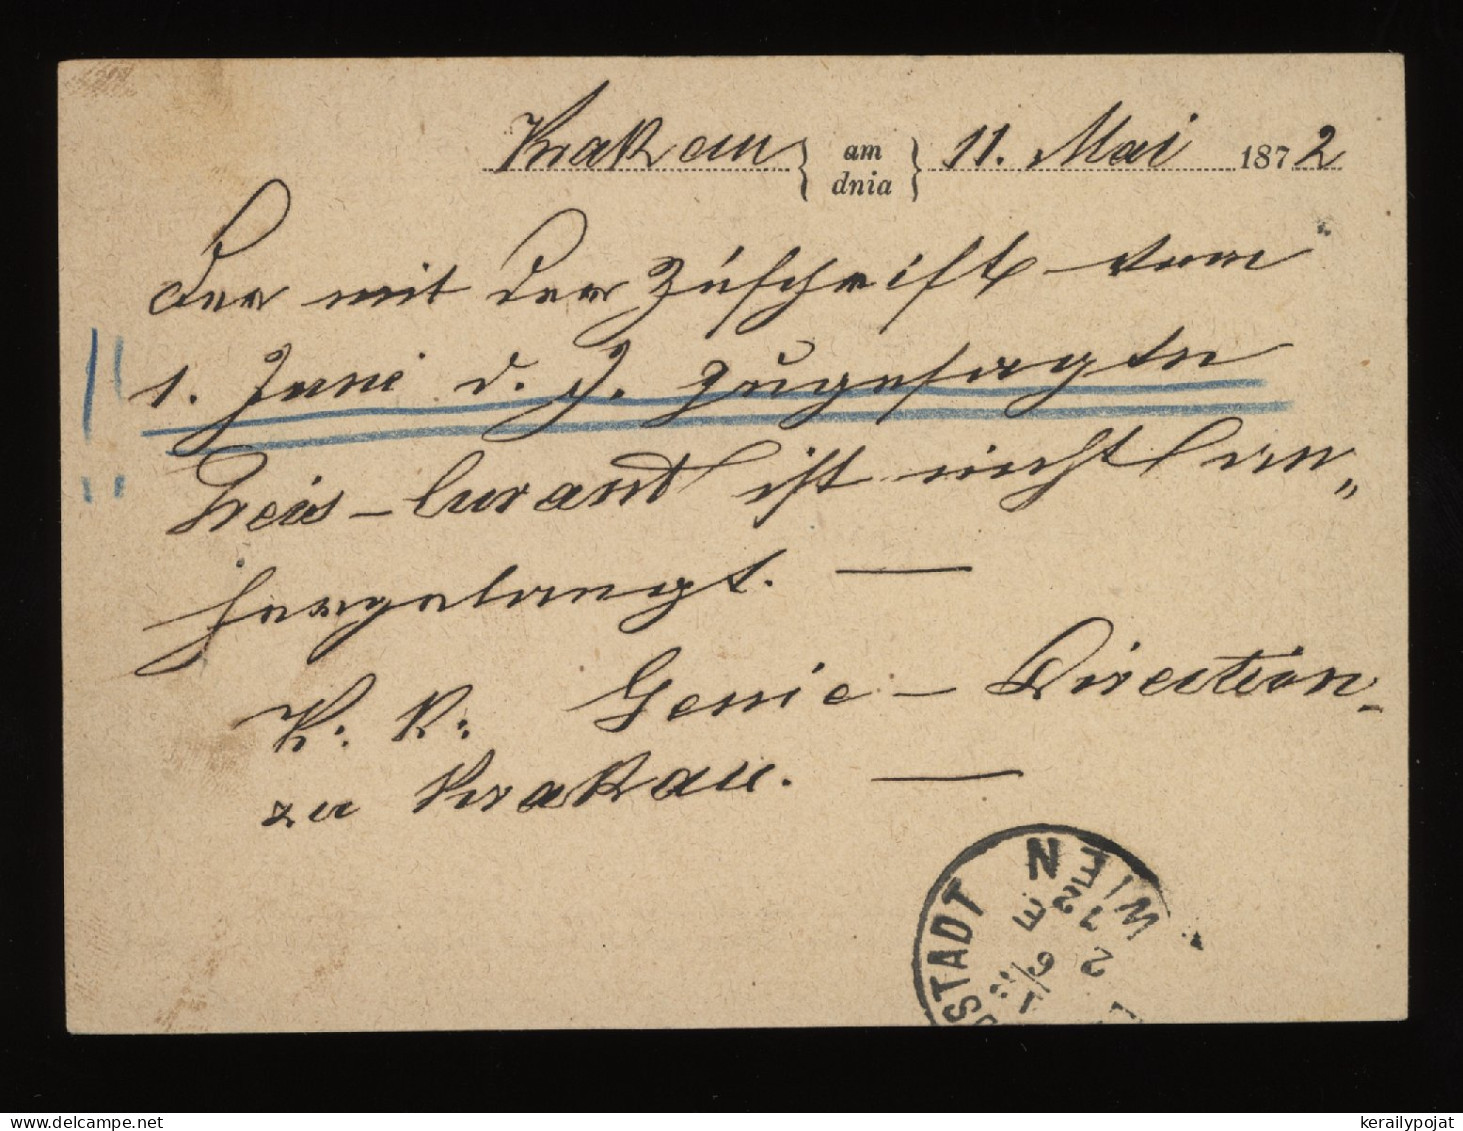 Krakau { am dnia } 11. Mai 1872
Der mit der Zuschrift vom
1. Juni d. J. zugesagte
Preis-Courant ist nicht
hergelangt. —
K: K: Genie-Direction
zu Krakau. —
STADT WIEN
kerailypojat